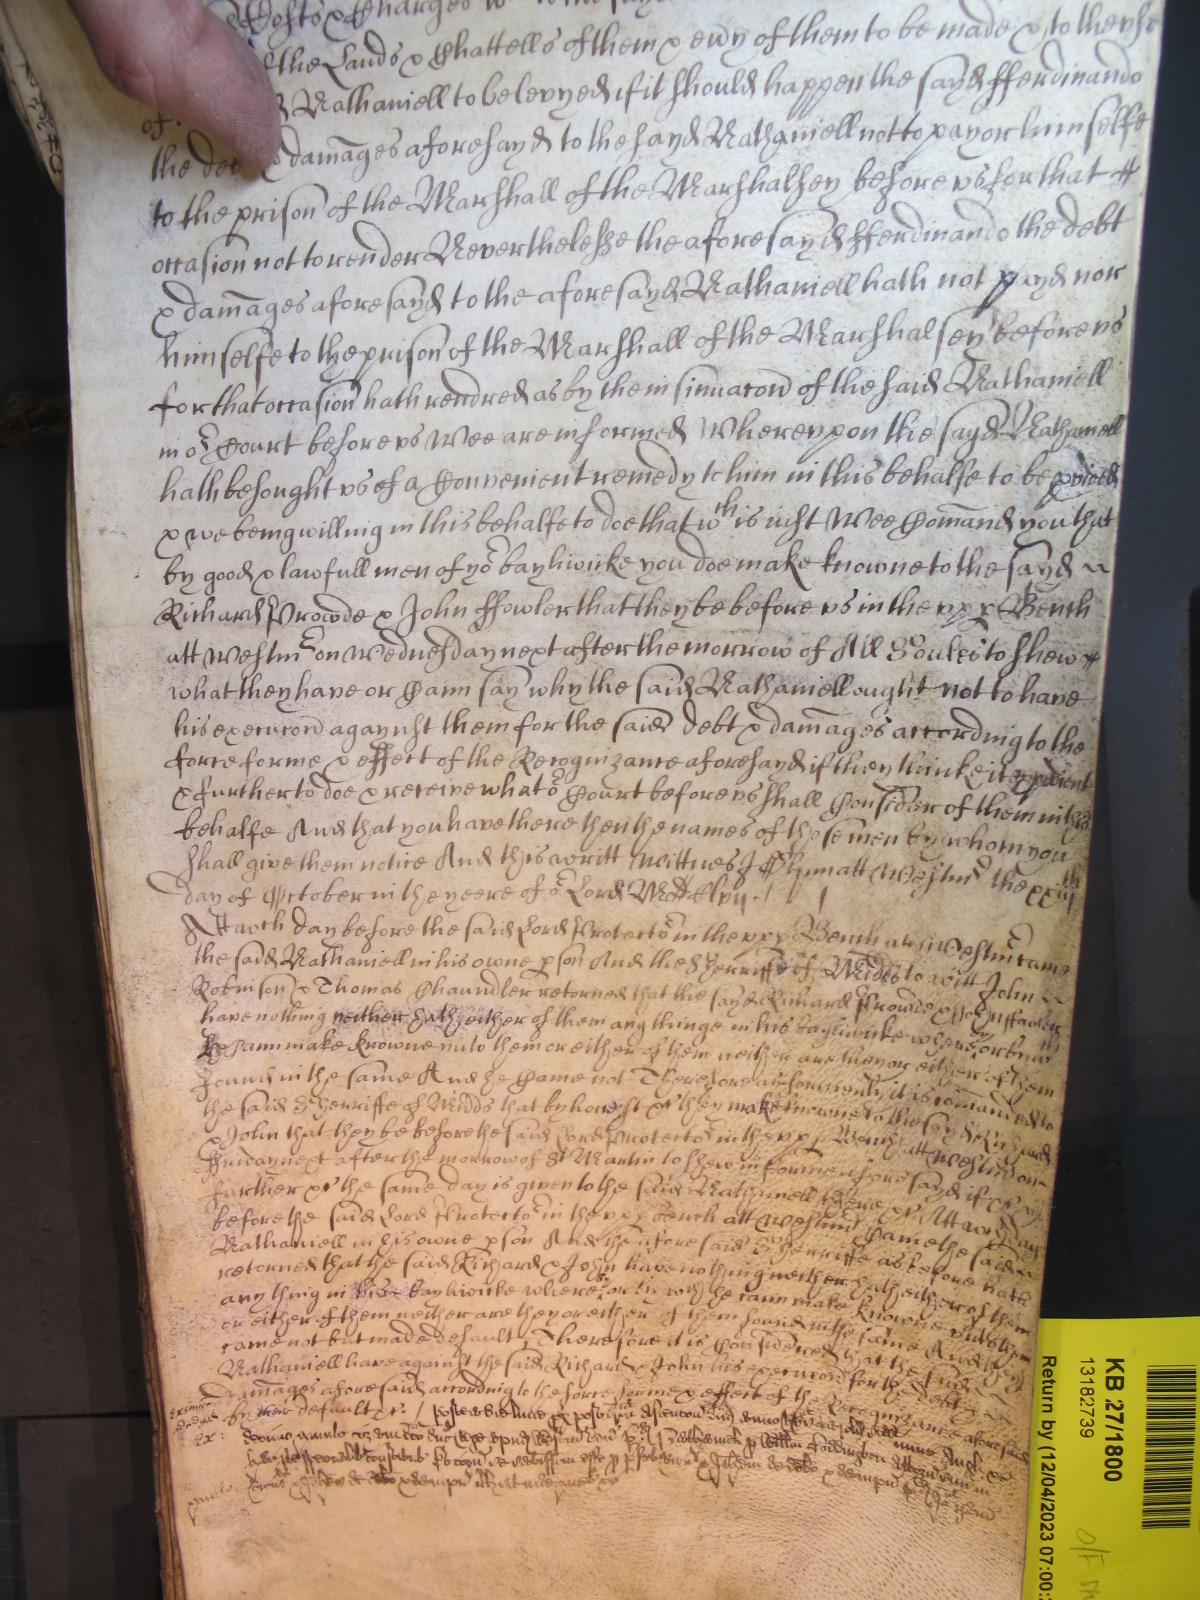 Costs & Charges
the Lands & Chattells of them & ev'y of them to be made & to the use
of Nathaniell to be levyed if it should happen the sayd Fferdinando
the debt damages aforesayd to the sayd Nathaniell not to pay or himselfe
to the prison of the Marshall of the Marshalsey before us for that
occasion not to render Neverthelesse the aforesayd Fferdinando the debt
& damages aforesayd to the aforesayd Nathaniell hath not payd nor
himselfe to the prison of the Marshall of the Marshalsey before us
for that occasion hath rendred as by the insinuacon of the said Nathaniell
in or Court before us Wee are informed Whereupon the sayd Nathaniell
hath besought us of a Convenient remedy to him in this behalfe to be p'vided
& we being willing in this behalfe to doe that wch is iust Wee Comand you that
by good & lawfull men of yor bayliwicke you doe make knowne to the sayd
Richard Prowde & John Ffowler that they be before us in the upp Bench
att Westmr on Wednesday next after the morrow of All Soules to shew
what they have or Cann say why the said Nathaniell ought not to have
his execucon against them for the said debt & damages according to the
force forme & effect of the Recognizance aforesayd if they thinke it expedient
& further to doe & receive what or Court before us shall Consider of them in this
behalfe And that you have there then the names of those men by whom you
shall give them notice And this writt Wittnes J Glynn att Westmr the xxiiijth
day of October in the yeere of or Lord MDClvij
Att wch day before the said Lord Protector in the upp Bench att Westmr came
the said Nathaniell in his owne pson And the Sherriffe of Midds to witt John
Robinson & Thomas Chaundler returned that the sayd Richard Prowde & John Ffowler
have nothing neither hath either of them any thinge in his bayliwicke where or by wch
he cann make knowne unto them or either of them neither are they or either of them
found in the same And he Came not Therefore as formerly it is comanded to
the said Sherriffe of Midds that by honest &c they make knowne to the sayd Richard
& John that they be before the said Lord Protector in the upp Bench att Westmr on
Fryday next after the morrow of St Martin to shew in forme aforesayd if &c
further &c the same day is given to the said Nathaniell there &c Att wch day
before the said Lord Protector in the upp Bench att Westmr Came the said
Nathaniell in his owne pson And the aforesaid Sherriffe as before hath
returned that the said Richard & John have nothing neither hath either of them
any thing in his bayliwicke where or by wch he cann make knowne unto them
or either of them neither are they or either of them found in the same And they
came not but made default Therefore it is Considered that the said
Nathaniell have against the said Richard & John his execucon for the debt &
damages aforesaid according to the force forme & effect of the Recognizance aforesaid
by their default &c
KB 27/1800
13182739
Return by (12/04/2023 07:00: